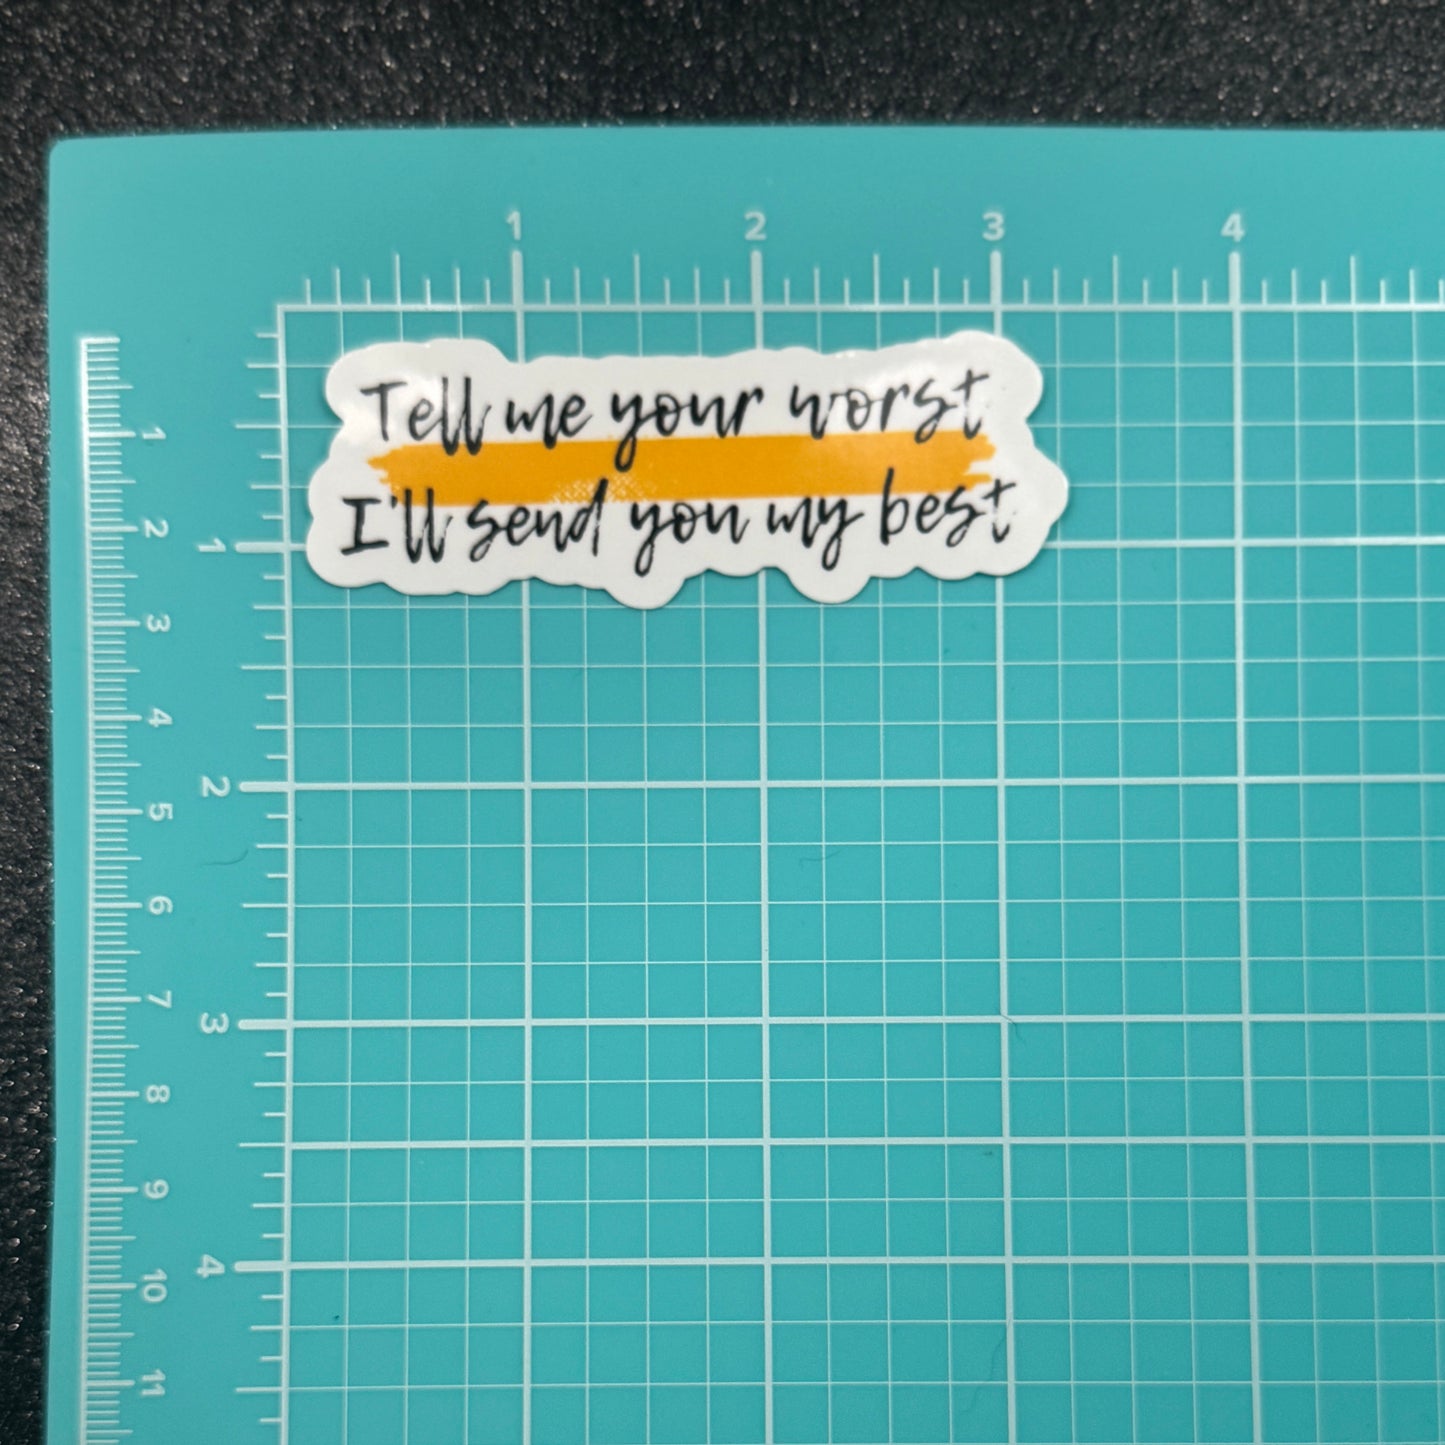 1 2 3 4
Tell me your worst
I'll send you my best
1
2
3
4
1
2
3
4
5
6
7
8
9
10
11